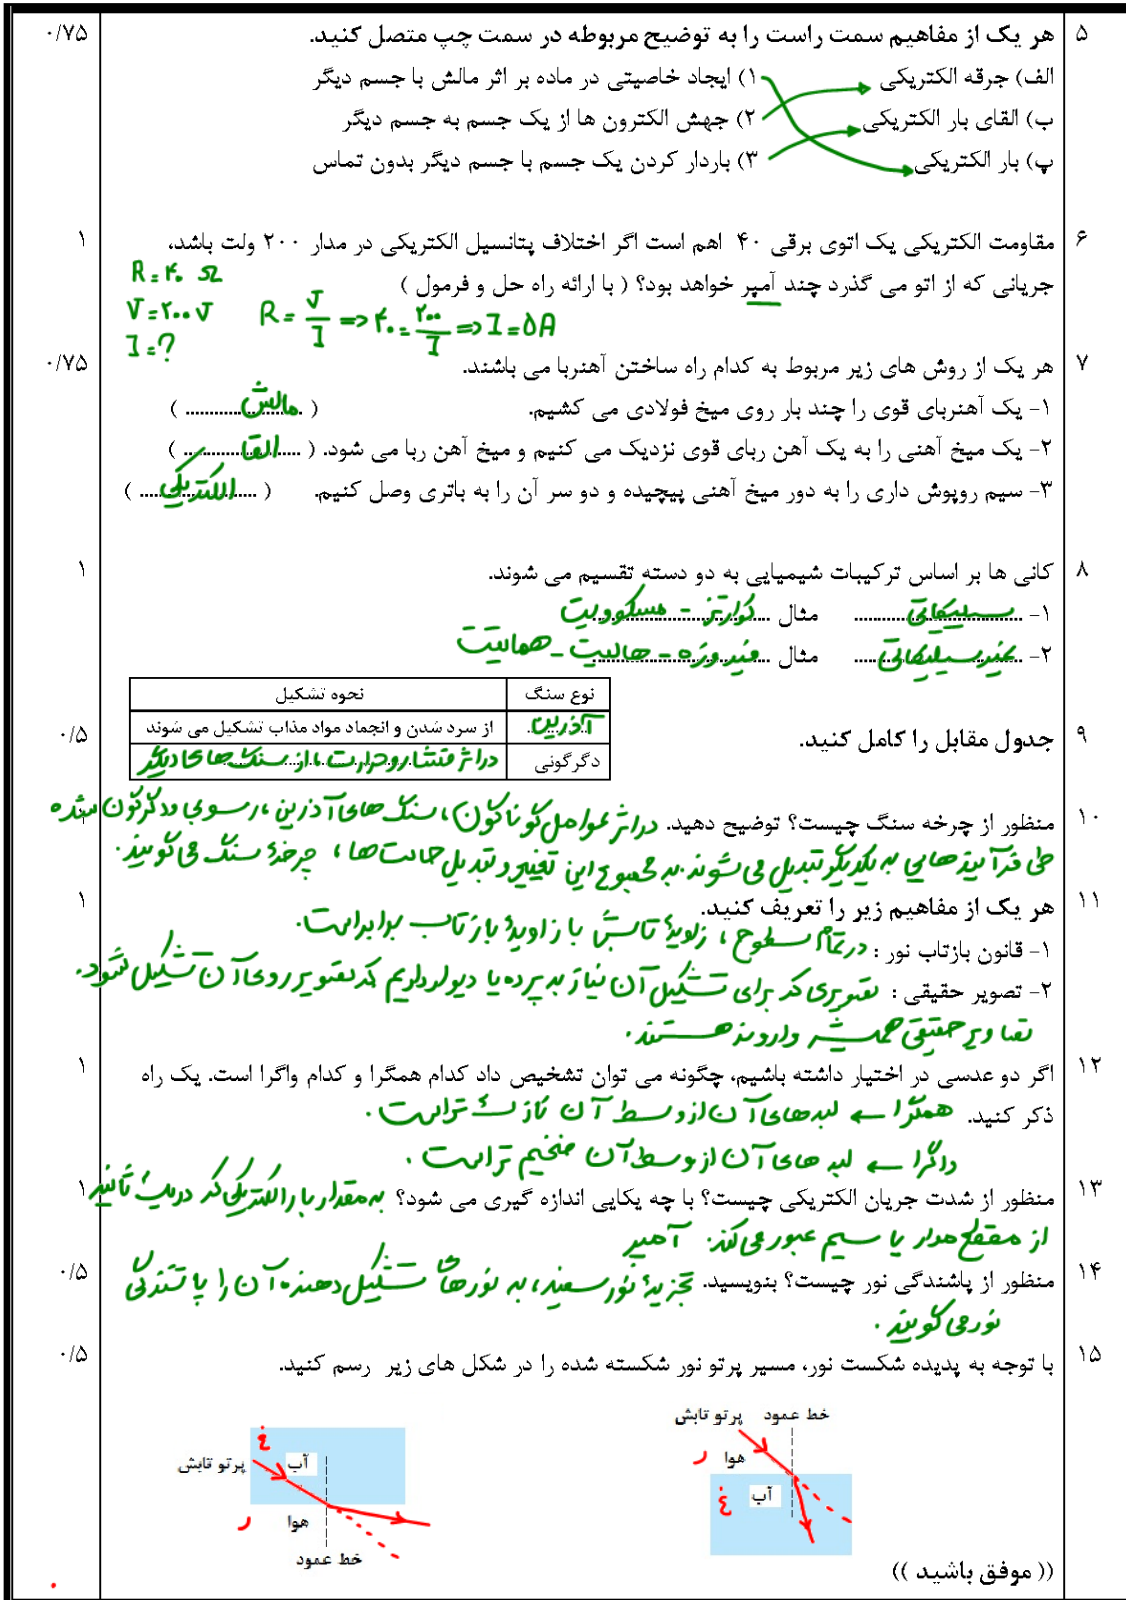 ۵ هر یک از مفاهیم سمت راست را به توضیح مربوطه در سمت چپ متصل کنید. ۰/۷۵
الف) جرقه الکتریکی ۱) ایجاد خاصیتی در ماده بر اثر مالش با جسم دیگر
ب) القای بار الکتریکی ۲) جهش الکترون ها از یک جسم به جسم دیگر
پ) بار الکتریکی ۳) باردار کردن یک جسم با جسم دیگر بدون تماس
۶ مقاومت الکتریکی یک اتوی برقی ۴۰ اهم است اگر اختلاف پتانسیل الکتریکی در مدار ۲۰۰ ولت باشد، ۱
جریانی که از اتو می گذرد چند آمپر خواهد بود؟ ( با ارائه راه حل و فرمول )
R = ۴۰ Ω
V = ۲۰۰ V R = V/I => ۴۰ = ۲۰۰/I => I = ۵A
I = ?
۷ هر یک از روش های زیر مربوط به کدام راه ساختن آهنربا می باشند. ۰/۷۵
۱- یک آهنربای قوی را چند بار روی میخ فولادی می کشیم. ( مالش )
۲- یک میخ آهنی را به یک آهن ربای قوی نزدیک می کنیم و میخ آهن ربا می شود. ( القا )
۳- سیم روپوش داری را به دور میخ آهنی پیچیده و دو سر آن را به باتری وصل کنیم. ( الکتریکی )
۸ کانی ها بر اساس ترکیبات شیمیایی به دو دسته تقسیم می شوند. ۱
۱- سیلیکاتی مثال کوارتز - مسکوویت
۲- غیر سیلیکاتی مثال فیروزه - هالیت - هماتیت
۹ جدول مقابل را کامل کنید. ۰/۵
نوع سنگ نحوه تشکیل
آذرین از سرد شدن و انجماد مواد مذاب تشکیل می شوند
دگرگونی در اثر فشار و حرارت، از سنگ های دیگر
۱۰ منظور از چرخه سنگ چیست؟ توضیح دهید. در اثر عوامل گوناگون، سنگ های آذرین، رسوبی و دگرگون شده
طی فرآیند هایی به یکدیگر تبدیل می شوند. به مجموع این تغییر و تبدیل حالت ها، چرخهٔ سنگ می گویند.
۱۱ هر یک از مفاهیم زیر را تعریف کنید. ۱
۱- قانون بازتاب نور : در تمام سطوح، زاویهٔ تابش با زاویهٔ بازتاب برابر است.
۲- تصویر حقیقی : تصویری که برای تشکیل آن نیاز به پرده یا دیوار داریم که تصویر روی آن تشکیل شود.
تصاویر حقیقی همیشه وارونه هستند.
۱۲ اگر دو عدسی در اختیار داشته باشیم، چگونه می توان تشخیص داد کدام همگرا و کدام واگرا است. یک راه ۱
ذکر کنید. همگرا ← لبه های آن از وسط آن نازک تر است.
واگرا ← لبه های آن از وسط آن ضخیم تر است.
۱۳ منظور از شدت جریان الکتریکی چیست؟ با چه یکایی اندازه گیری می شود؟ به مقدار بار الکتریکی که در یک ثانیه ۱
از مقطع مدار یا سیم عبور می کند. آمپر
۱۴ منظور از پاشندگی نور چیست؟ بنویسید. تجزیهٔ نور سفید، به نورهای تشکیل دهنده آن را پاشندگی ۰/۵
نور می گویند.
۱۵ با توجه به پدیده شکست نور، مسیر پرتو نور شکسته شده را در شکل های زیر رسم کنید. ۰/۵
خط عمود پرتو تابش
هوا ر
آب غ
غ
پرتو تابش آب
هوا ر
خط عمود
(( موفق باشید ))